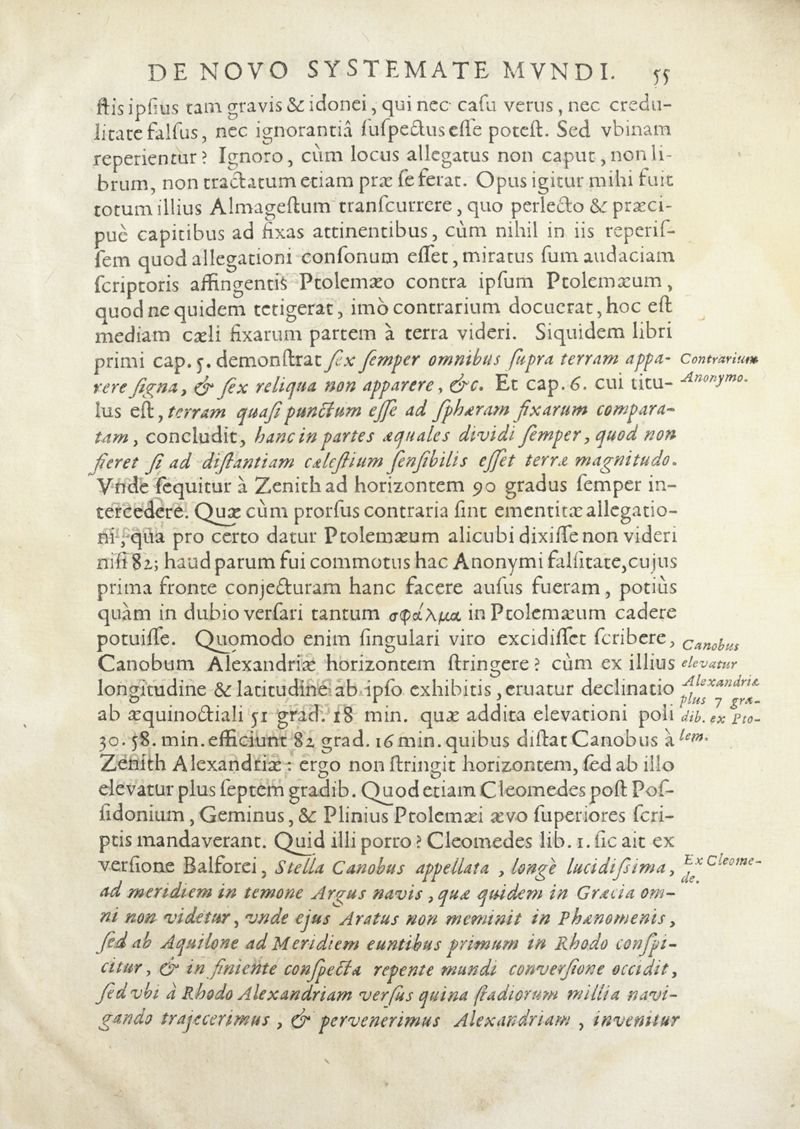 DE NOVO SYSTEMATE MVNDI. 55
ſtis ipſius tam gravis & idonei, qui nec caſu verus, nec credu-
litate falſus, nec ignorantiâ ſuſpectus eſſe poteſt. Sed vbinam
reperientur? Ignoro, cùm locus allegatus non caput, non li-
brum, non tractatum etiam præ ſe ferat. Opus igitur mihi fuit
totum illius Almageſtum tranſcurrere, quo perlecto & præci-
puè capitibus ad fixas attinentibus, cùm nihil in iis reperiſ-
ſem quod allegationi conſonum eſſet, miratus ſum audaciam
ſcriptoris affingentis Ptolemæo contra ipſum Ptolemæum,
quod ne quidem tetigerat, imò contrarium docuerat, hoc eſt
mediam cæli fixarum partem à terra videri. Siquidem libri
primi cap. 5. demonſtrat ſex ſemper omnibus ſupra terram appa-
rere ſigna, & ſex reliqua non apparere, &c. Et cap. 6. cui titu-
lus eſt, terram quaſi punctum eſſe ad ſphæram fixarum compara-
tam, concludit, hanc in partes æquales dividi ſemper, quod non
fieret ſi ad diſtantiam cæleſtium ſenſibilis eſſet terræ magnitudo.
Vnde ſequitur à Zenith ad horizontem 90 gradus ſemper in-
tercedere. Quæ cùm prorſus contraria ſint ementitæ allegatio-
ni, qua pro certo datur Ptolemæum alicubi dixiſſe non videri
niſi 82; haud parum fui commotus hac Anonymi falſitate, cujus
prima fronte conjecturam hanc facere auſus fueram, potiùs
quàm in dubio verſari tantum σφάλμα in Ptolemæum cadere
potuiſſe. Quomodo enim ſingulari viro excidiſſet ſcribere,
Canobum Alexandriæ horizontem ſtringere? cùm ex illius
longitudine & latitudine ab ipſo exhibitis, eruatur declinatio
ab æquinoctiali 51 grad. 18 min. quæ addita elevationi poli
30. 58. min. efficiunt 82 grad. 16 min. quibus diſtat Canobus à
Zenith Alexandriæ: ergo non ſtringit horizontem, ſed ab illo
elevatur plus ſeptem gradib. Quod etiam Cleomedes poſt Poſ-
ſidonium, Geminus, & Plinius Ptolemæi ævo ſuperiores ſcri-
ptis mandaverant. Quid illi porro? Cleomedes lib. 1. ſic ait ex
verſione Balforei, Stella Canobus appellata, longè lucidiſsima,
ad meridiem in temone Argus navis, quæ quidem in Græcia om-
ni non videtur, vnde ejus Aratus non meminit in Phænomenis,
ſed ab Aquilone ad Meridiem euntibus primum in Rhodo conſpi-
citur, & in finiente conſpecta repente mundi converſione occidit,
ſed vbi à Rhodo Alexandriam verſus quina ſtadiorum millia navi-
gando trajecerimus, & pervenerimus Alexandriam, invenitur
Contrarium
Anonymo.
Canobus
elevatur
Alexandriæ
plus 7 gra-
dib. ex Pto-
lem.
Ex Cleome-
de.